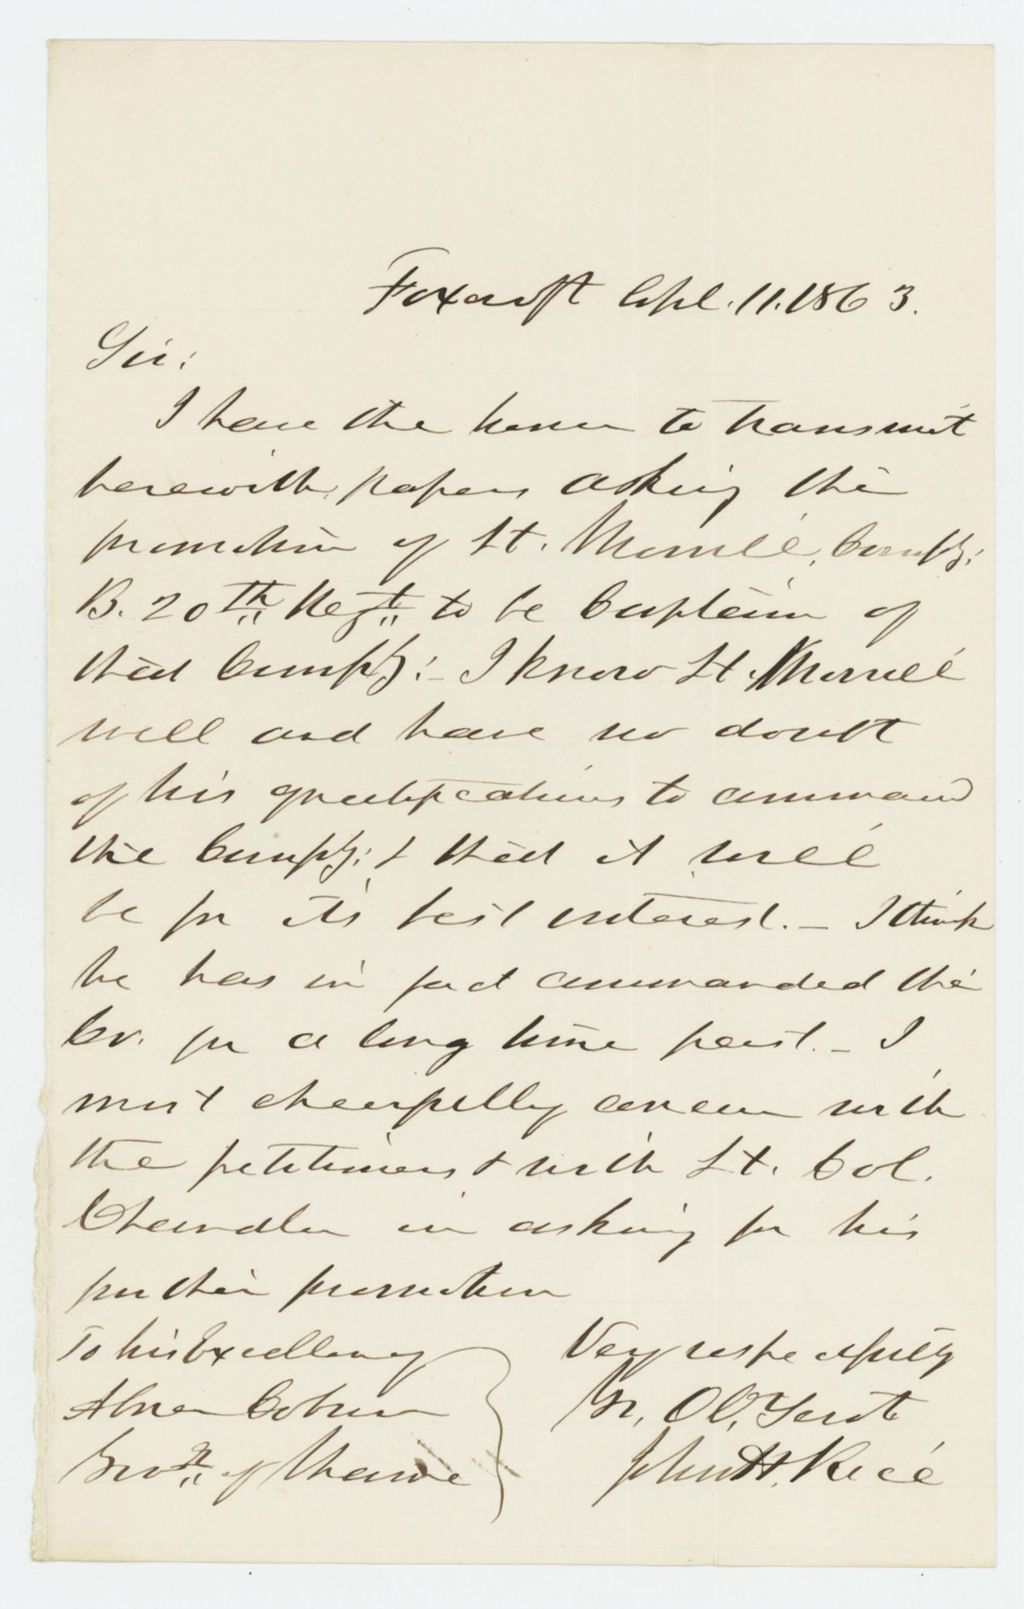 Foxcroft Apl. 11. 1863.
Sir:
I have the honor to transmit
herewith papers asking the
promotion of Lt. Morrill, Comp'y:
B. 20th Regt. to be Captain of
that Comp'y: - I know Lt. Morrill
well and have no doubt
of his qualifications to command
the Comp'y: & that it will
be for it's best interest. - I think
he has in fact commanded the
Co. for a long time past. - I
most cheerfully concur with
the petitioners & with Lt. Col.
Chandler in asking for his
further promotion
To his Excellency
Abner Coburn
Govr. of Maine
Very respectfully
Yr. Ob. Servt.
John H. Rice